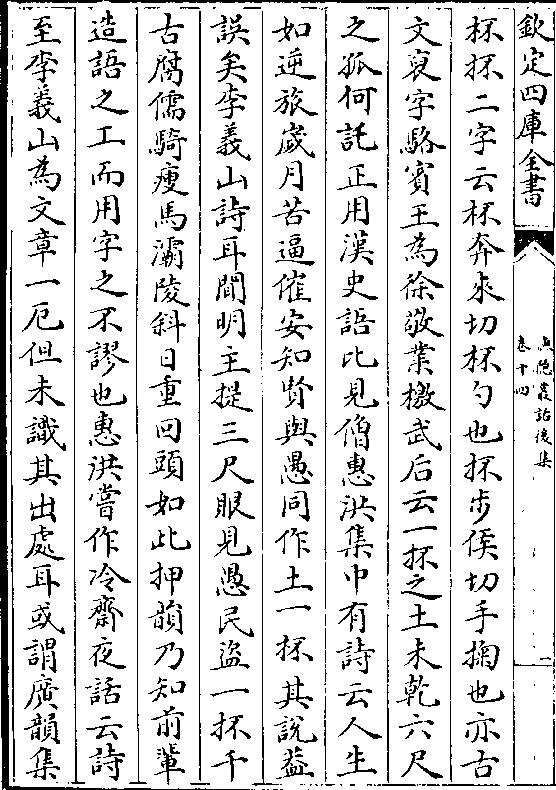 欽定四庫全書
漁隱叢話後集
卷十四
杯抔二字云杯奔求切杯勺也抔步侯切手掬也亦古
文裒字駱賓王為徐敬業檄武后云一抔之土未乾六尺
之孤何託正用漢史語比見僧惠洪集中有詩云人生
如逆旅歲月苦逼催安知賢與愚同作土一杯其說益
誤矣李義山詩耳聞明主提三尺眼見愚民盜一抔千
古腐儒騎瘦馬灞陵斜日重回頭如此押韻乃知前輩
造語之工而用字之不謬也惠洪嘗作冷齋夜話云詩
至李義山為文章一厄但未識其出處耳或謂廣韻集